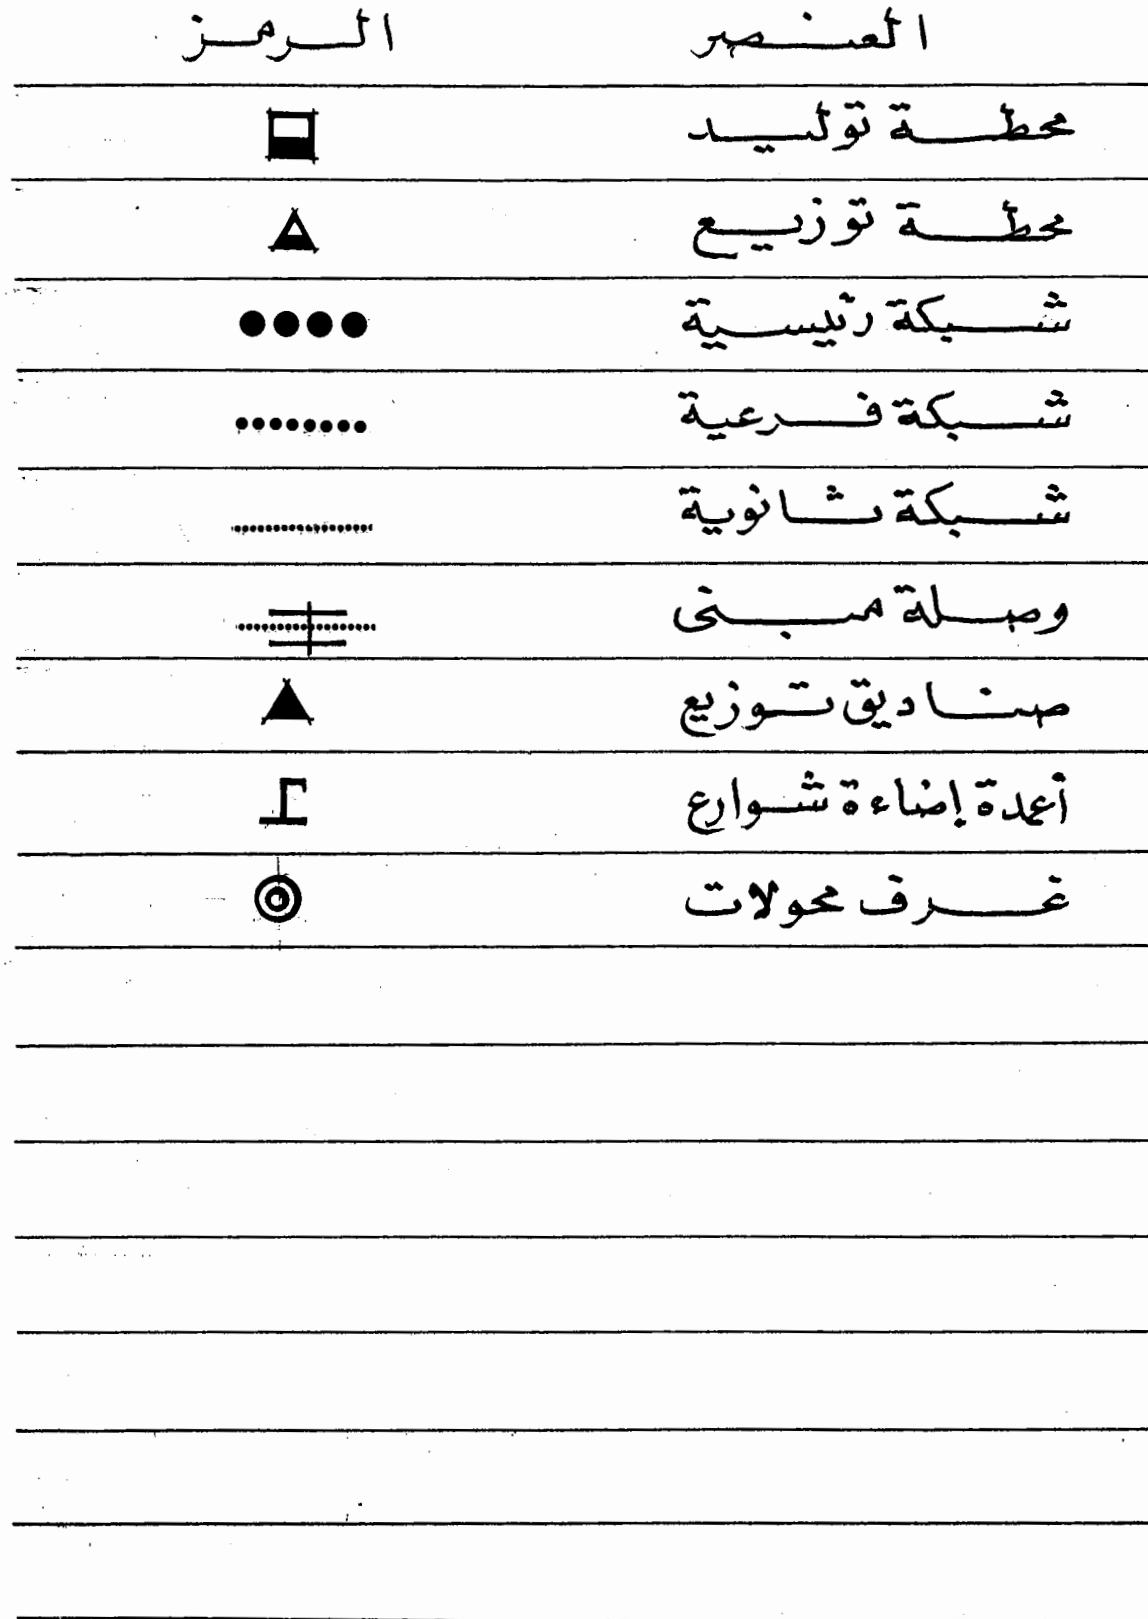 العنصر الرمز
محطة توليد
محطة توزيع
شبكة رئيسية
شبكة فرعية
شبكة ثانوية
وصلة مبنى
صناديق توزيع
أعمدة إضاءة شوارع
غرف محولات